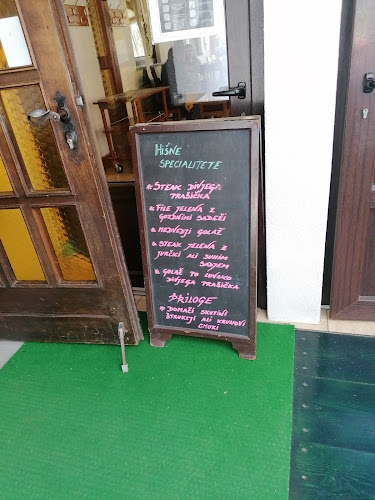 HIŠNE
SPECIALITETE
* STEAK DIVJEGA
PRAŠIČKA
* FILE JELENA Z
GOZDNIMI SADEŽI
* MEDVEDJI GOLAŽ
* STEAK JELENA Z
JURČKI ALI SUHIM
SADJEM
* GOLAŽ PO LOVSKO
DIVJEGA PRAŠIČKA
PRILOGE
* DOMAČI SKUTINI
ŠTRUKLJI ALI KRUHOVI
CMOKI